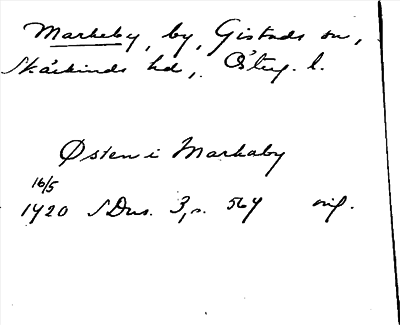 Markeby, by, Gistads sn,
Skärkinds hd, Östg. l.
Østen i Markaby
16/5
1420 SDns. 3, s. 567 orig.